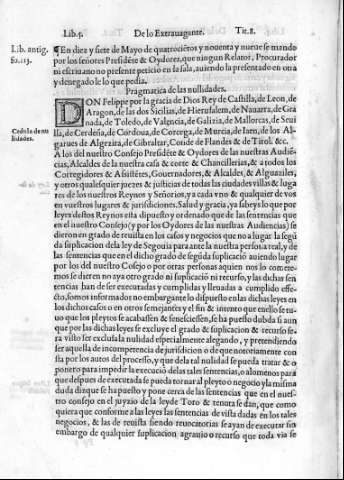 Lib.5. De lo Extravagante. Tit.8.
Lib. antig. fo.113.
¶En diez y siete de Mayo de quatrociẽtos y nouenta y nueue se mando
por los señores Presidẽte & Oydores, que ningun Relator, Procurador
ni escriuano no presente peticion en sa sala, auiendo la presentado en otra
y denegado lo que pedia.
Pragmatica de las nullidades.
Cedula de nullidades.
DON Felippe por la gracia de Dios Rey de Castilla, de Leon, de
Aragon, de las dos Sicilias, de Hierusalem, de Nauarra, de Gra
nada, de Toledo, de Valẽcia, de Galizia, de Mallorcas, de Seui
lla, de Cerdeña, de Cordoua, de Corcega, de Murcia, de Iaen, de los Al-
garues de Algezira, de Gibraltar, Conde de Flandes & de Tirol. &c.
A los del nuestro Consejo Presidẽte & Oydores de las nuestras Audiẽ-
cias, Alcaldes de la nuestra casa & corte & Chancillerias, & a todos los
Corregidores & Asistẽtes, Gouernadores, & Alcaldes, & Alguaziles,
y otros qualesquier juezes & justicias de todas las ciudades villas & luga
res de los nuestros Reynos y Señorios, y a cada vno & qualquier de vos
en vuestros lugares & jurisdiciones. Salud y gracia, ya sabeys lo que por
leyes destos Reynos esta dispuesto y ordenado que de las sentencias que
en el nuestro Consejo (y por los Oydores de las nuestras Audiencias) se
dieron en grado de reuista en los casos y negocios que no a lugar la segũ
da suplicacion de la ley de Segouia para ante la nuestra persona real, y de
las sentencias que en el dicho grado de segũda suplicacio auiendo lugar
por los del nuestro Cõsejo o por otras personas aquien nos lo comete-
mos se dieren no aya otro grado ni suplicacio ni recurso, y las dichas sen
tencias han de ser executadas y cumplidas y lleuadas a cumplido effe-
cto, somos informados no embargante lo dispuesto en las dichas leyes en
los dichos casos o en otros semejantes y el fin & intento que en ello se tu-
uo que los pleytos se acabassen & feneciessen, se ha puesto dubda si aun
que por las dichas leyes se excluye el grado & suplicacion & recurso se
ra visto ser excluida la nulidad especialmente alegando, y pretendiendo
ser aquella de incompetencia de jurisdicion o de que notoriamente con
sta por los autos del processo, y que de la tal nulidad se pueda tratar & o
ponerse para impedir la execuciõ de las tales sentencias, o alomenos para
que despues de executada se pueda tornar al pleyto o negocio y la misma
duda dizque se ha puesto y pone cerca de las sentencias que en el nues-
tro consejo en el juyzio de la ley de Toro & tenuta se dan, que como
quiera que conforme a las leyes las sentencias de vista dadas en los tales
negocios, & las de reuista siendo reuocatorias se ayan de executar sin
embargo de qualquier suplicacion agrauio o recurso que toda via se